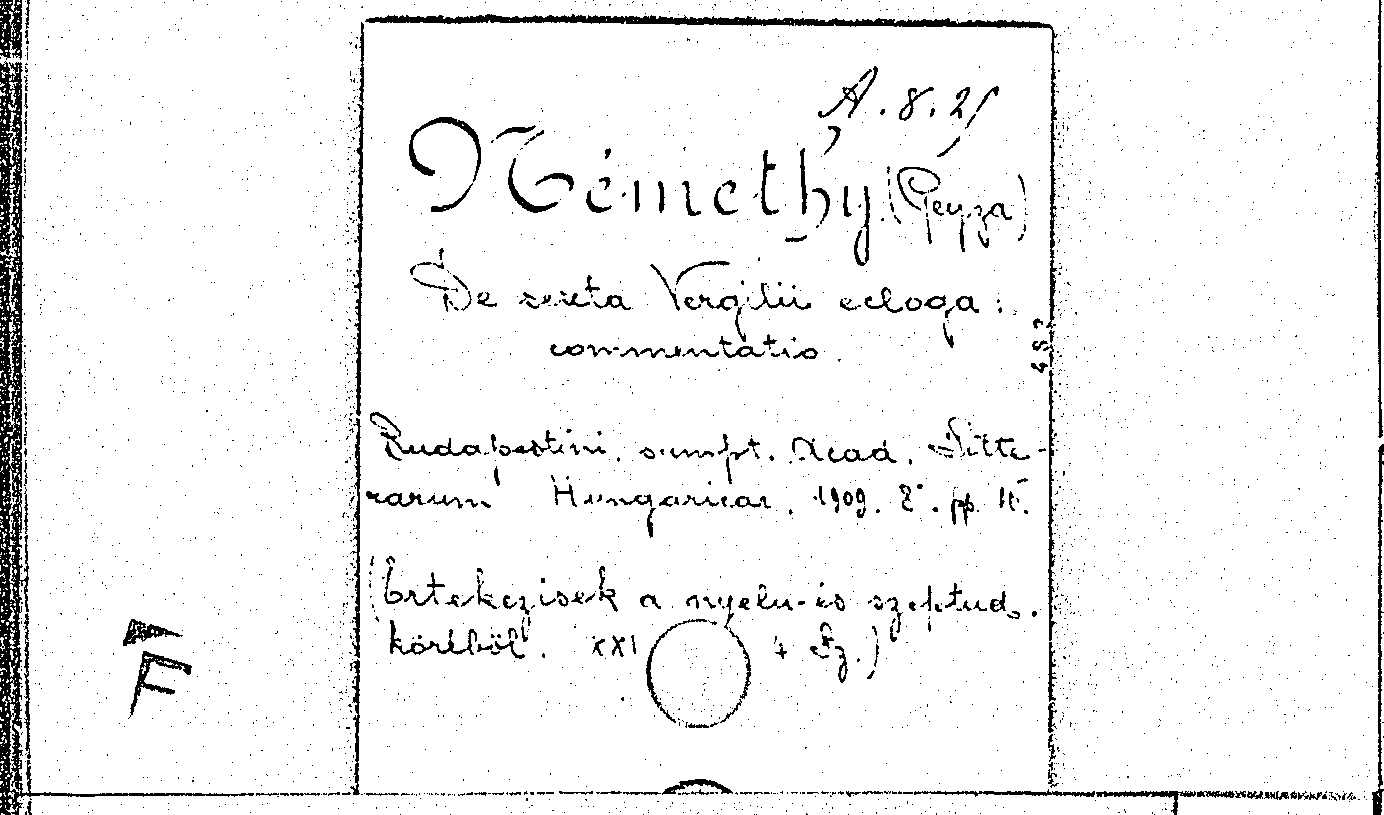 A. 8. 25
Némethy (Geyza)
De sexta Vergilii ecloga:
commentatio.
482
Budapestini, sumpt. Acad. Litte-
rarum Hungaricae. 1909. 8°. pp.
(Értekezések a nyelv-és széptud.
köréből. XXI 4 Sz.)
F